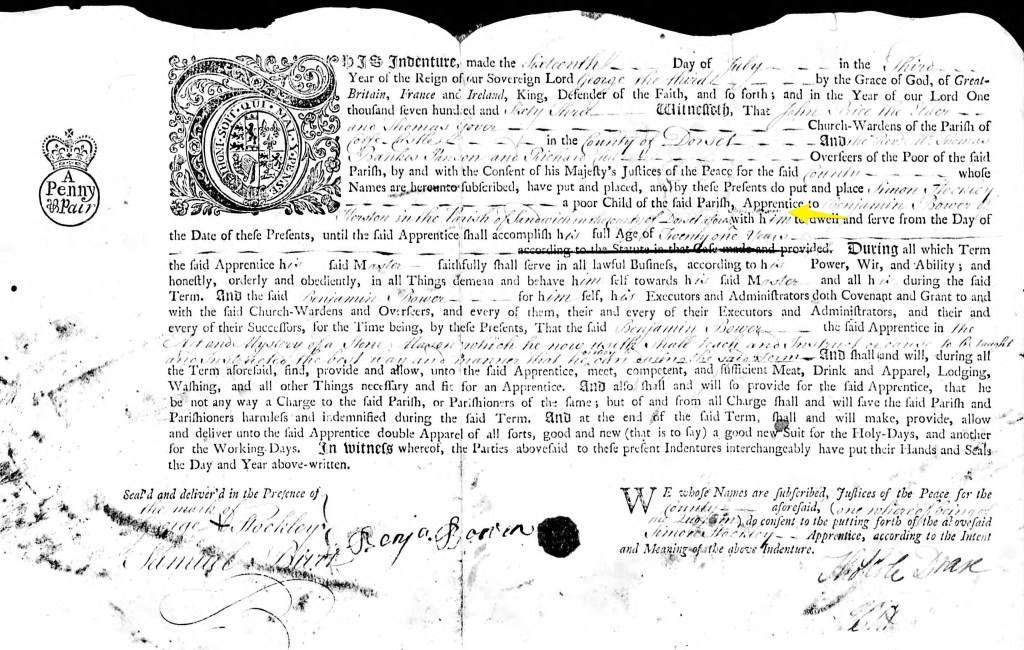 THIS Indenture, made the Sixteenth Day of July in the Third
Year of the Reign of our Sovereign Lord George the third by the Grace of God, of Great-
Britain, France and Ireland, King, Defender of the Faith, and so forth; and in the Year of our Lord One
thousand seven hundred and Sixty Three Witnesseth, That John Price the Elder
and Thomas Gover Church-Wardens of the Parish of
Corfe Castle in the County of Dorset And the Revd Mr Thomas
Bankes Parson and Richard Overseers of the Poor of the said
Parish, by and with the Consent of his Majesty's Justices of the Peace for the said County whose
Names are hereunto subscribed, have put and placed, and by these Presents do put and place Simon Stockley
a poor Child of the said Parish, Apprentice to Benjamin Bower of
Herston in the Parish of Sandwich in the County of Dorset with him to dwell and serve from the Day of
the Date of these Presents, until the said Apprentice shall accomplish his full Age of Twenty one Years
according to the Statute in that Case made and provided. During all which Term
the said Apprentice his said Master faithfully shall serve in all lawful Business, according to his Power, Wit, and Ability; and
honestly, orderly and obediently, in all Things demean and behave him self towards his said Master and all his during the said
Term. And the said Benjamin Bower for him self, his Executors and Administrators doth Covenant and Grant to and
with the said Church-Wardens and Overseers, and every of them, their and every of their Executors and Administrators, and their and
every of their Successors, for the Time being, by these Presents, That the said Benjamin Bower the said Apprentice in the
Art and Mystery of a Stone Mason which he now useth shall teach and Instruct or cause to be taught
and Instructed the best way and manner that he can during the said Term And shall and will, during all
the Term aforesaid, find, provide and allow, unto the said Apprentice, meet, competent, and sufficient Meat, Drink and Apparel, Lodging,
Washing, and all other Things necessary and fit for an Apprentice. And also shall and will so provide for the said Apprentice, that he
be not any way a Charge to the said Parish, or Parishioners of the same; but of and from all Charge shall and will save the said Parish and
Parishioners harmless and indemnified during the said Term. And at the end of the said Term, shall and will make, provide, allow
and deliver unto the said Apprentice double Apparel of all sorts, good and new (that is to say) a good new Suit for the Holy-Days, and another
for the Working-Days. In witness whereof, the Parties abovesaid to these present Indentures interchangeably have put their Hands and Seals
the Day and Year above-written.
HONI SOIT QUI MAL Y PENSE
A
Penny
Pair
Seal'd and deliver'd in the Presence of
the mark of
George + Stockley
Samuel Burt
Benja Bower
WE whose Names are subscribed, Justices of the Peace for the
County aforesaid, (one whereof being of
the Quorum) do consent to the putting forth of the abovesaid
Simon Stockley Apprentice, according to the Intent
and Meaning of the above Indenture.
Drax